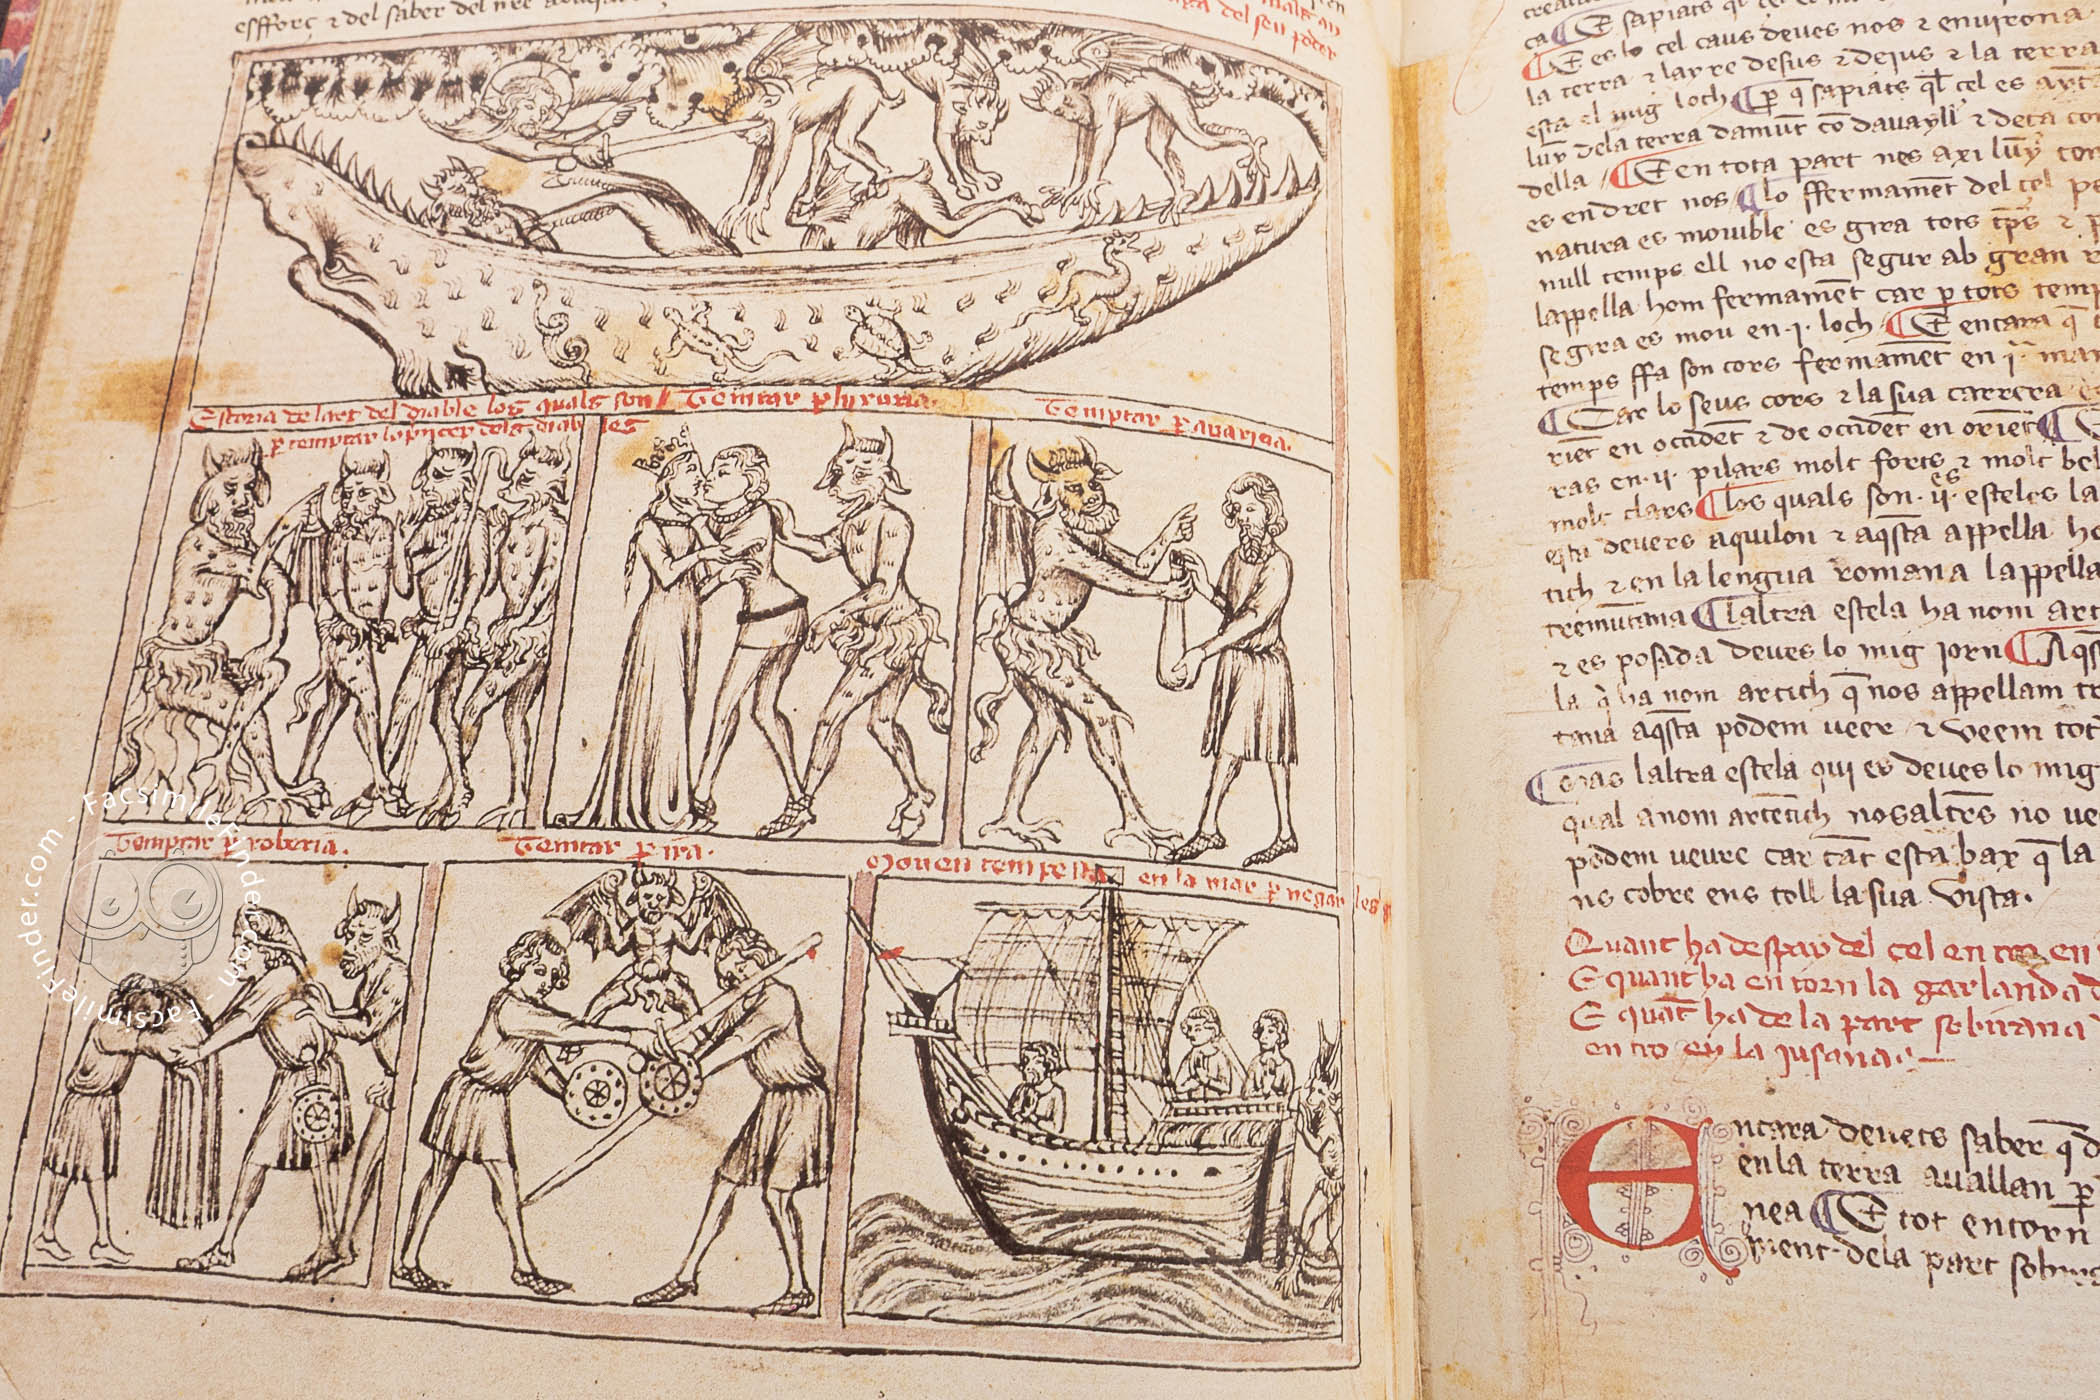 esfforç ⁊ del saber del
del seu poder
Estoria de lart del diable los quals son
Temtar p luxuria.
Temptar p auaricia.
p temptar lo pncep dels diables
Temptar p roberia.
Temtar p ira.
Mouen tempesta en la mar p negar les
ca E sapiats q
E es lo cel caus deues nos ⁊ enuirona
la terra ⁊ layre desus ⁊ dejus ⁊ la terra
esta el mig loch p q sapiats ql cel es aytāt
luny dela terra damūt cō dauayll ⁊ deta
della E en tota part nes axi luny
es endret nos lo ffermamēt del cel
natura es mouible es gira tots tps ⁊
null temps ell no esta segur ab gran
lappella hom fermamēt car p tots temps
se gira es mou en .j. loch E encara q
temps ffa son cors fermamēt en
Car lo seus cors ⁊ la sua carrera
riēt en occidēt ⁊ de occidēt en oriēt
ras en .ij. pilars molt forts ⁊ molt
molt clars los quals son .ij. esteles
esta deuers aquilon ⁊ aqsta appella
tich ⁊ en la lengua romana lappella
tremūtana laltra estela ha nom
⁊ es posada deues lo mig jorn
la q ha nom artich q nos appellam
tana aqsta podem ueer ⁊ veem
mas laltra estela qui es deues lo mig
qual a nom artētich nosaltres no
podem ueure car tāt esta bax q la
ns cobre ens toll la sua vista.
Quant ha despay del cel en tro en
E quant ha en torn la garlanda
E quāt ha de la part sobirana
en tro en la jusana.
Encara deuets saber q
en la terra auallan p
nea E tot entorn
ment dela part
FacsimileFinder.com - FacsimileFinder.com -